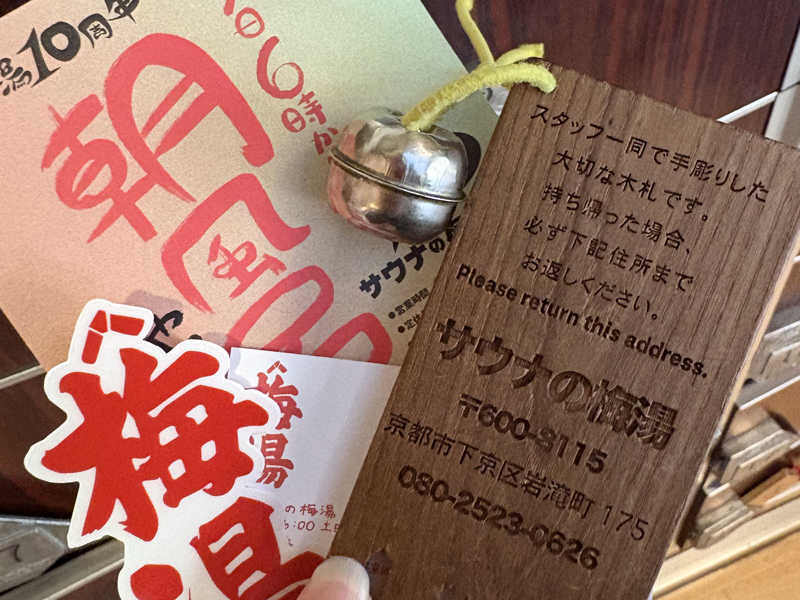 湯10周年
朝風
6時か
サウナの梅
●営業時間
●定休
梅
湯
梅
湯
の梅湯
6:00 土日
スタッフ一同で手彫りした
大切な木札です。
持ち帰った場合、
必ず下記住所まで
お返しください。
Please return this address.
サウナの梅湯
〒600-8115
京都市下京区岩滝町175
080-2523-0626